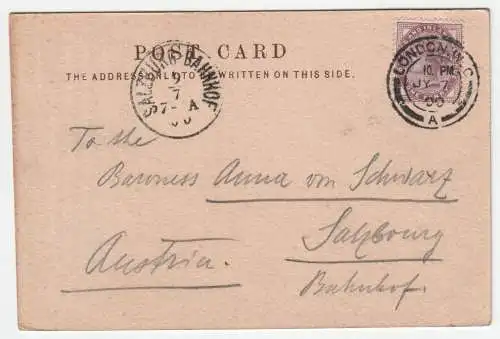 POST CARD
THE ADDRESS ONLY TO BE WRITTEN ON THIS SIDE.
SALZBURG BAHNHOF
9
7
7- A
00
LONDON. W.C
10. PM
JY 7
00
A
To the
Baroness Anna von Schwarz
Salzbourg
Austria. Bahnhof.